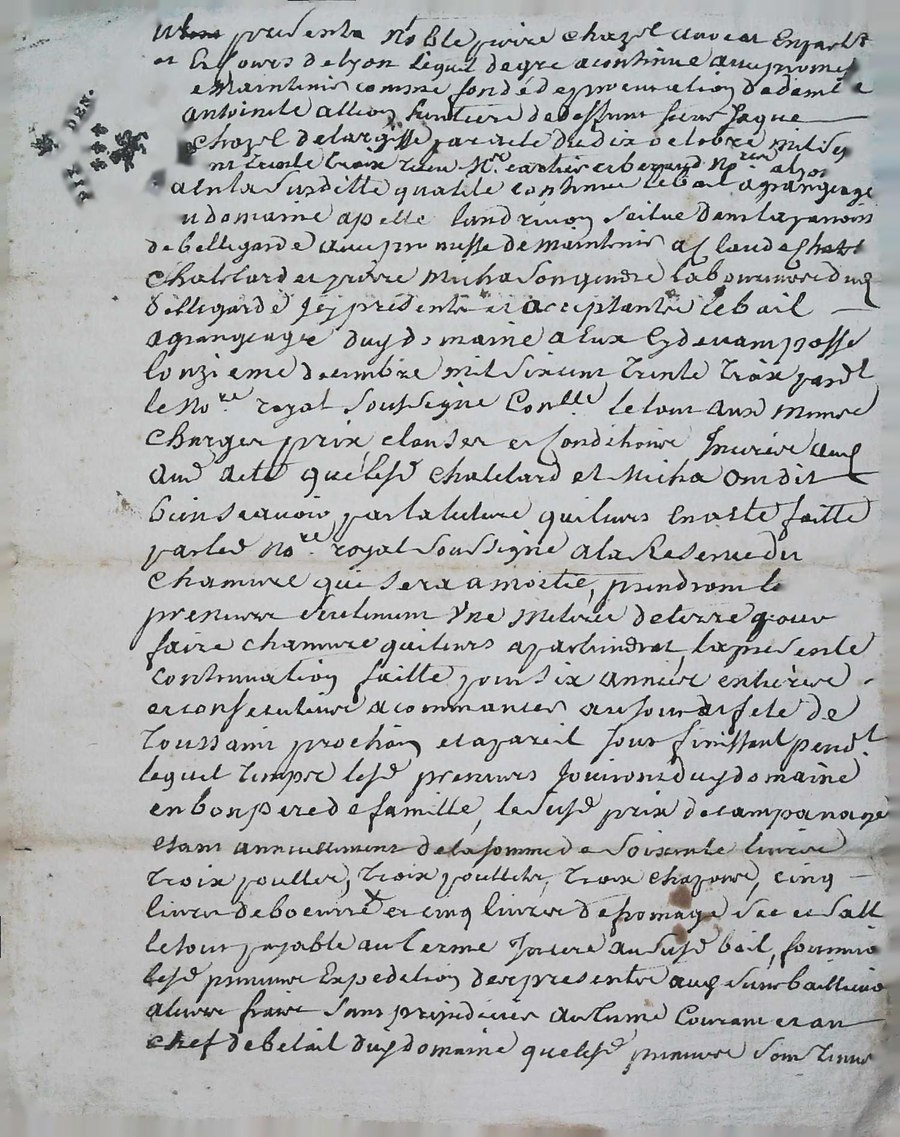 presenta noble pierre chazel avocat En parlt
et Es Cours de lyon lequel de gre a continue avec promes
e Maintenir comme fondé de procuration de dam le
antoinete allion heritiere de deffunt sieur Jaque
Chazel de par acte du dix octobre mil sep
nt trente troix recu Nre. cartier et begaud nres. a lyon
a en la Susditte qualite continue le bail a grangeage
u domaine apelle landrivon scitue dans la parroiss
de bellegarde avec promesse de maintenir a Claude
Chatelard et pierre Micha Son gendre laboureurs dud
bellegarde Icy presents et acceptants le bail
a grangeage dudy domaine a Eux Cy devant passe
lonzieme decembre mil six cent trente troix pardt
le Nore. royal Soussigne le tout aux memes
charges prix clauses et Conditions Inserées aud
aud acte que lesd Chatelard et Micha ont dit
bien scavoir par la lecture qui leurs en a esté faitte
par led Nore. royal Soussigne a la Reserve du
chamvre qui sera a moitie, prendront le
premiers seulement Une meteree de terre pour
faire chamvre qui leurs apartiendrat, la presente
continuation faitte pour six années entieres
et consecutives a commancer au jour et fete de
Toussaint prochain et a pareil jour finissant pendt.
lequel temps lesd preneurs Jouiront dudy domaine
en bon pere de famille, le susd prix de campanage
etant annuellement de la somme de soixante livres
troix poulles, troix poullets, troix chapons, cinq
livres de boeurre et cinq livres de fromage sec et salle
le tout payable au terme Inseré au susd bail, fourniro
lesd preneurs Expedition des presentes aud sieur bailleur
a leurs frais sans prejudice au terme Courant et au
chef de betail dudy domaine que lesd preneurs sont tenus